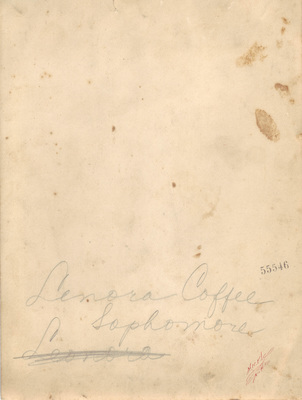 55546
Lenora Coffee
Sophomore